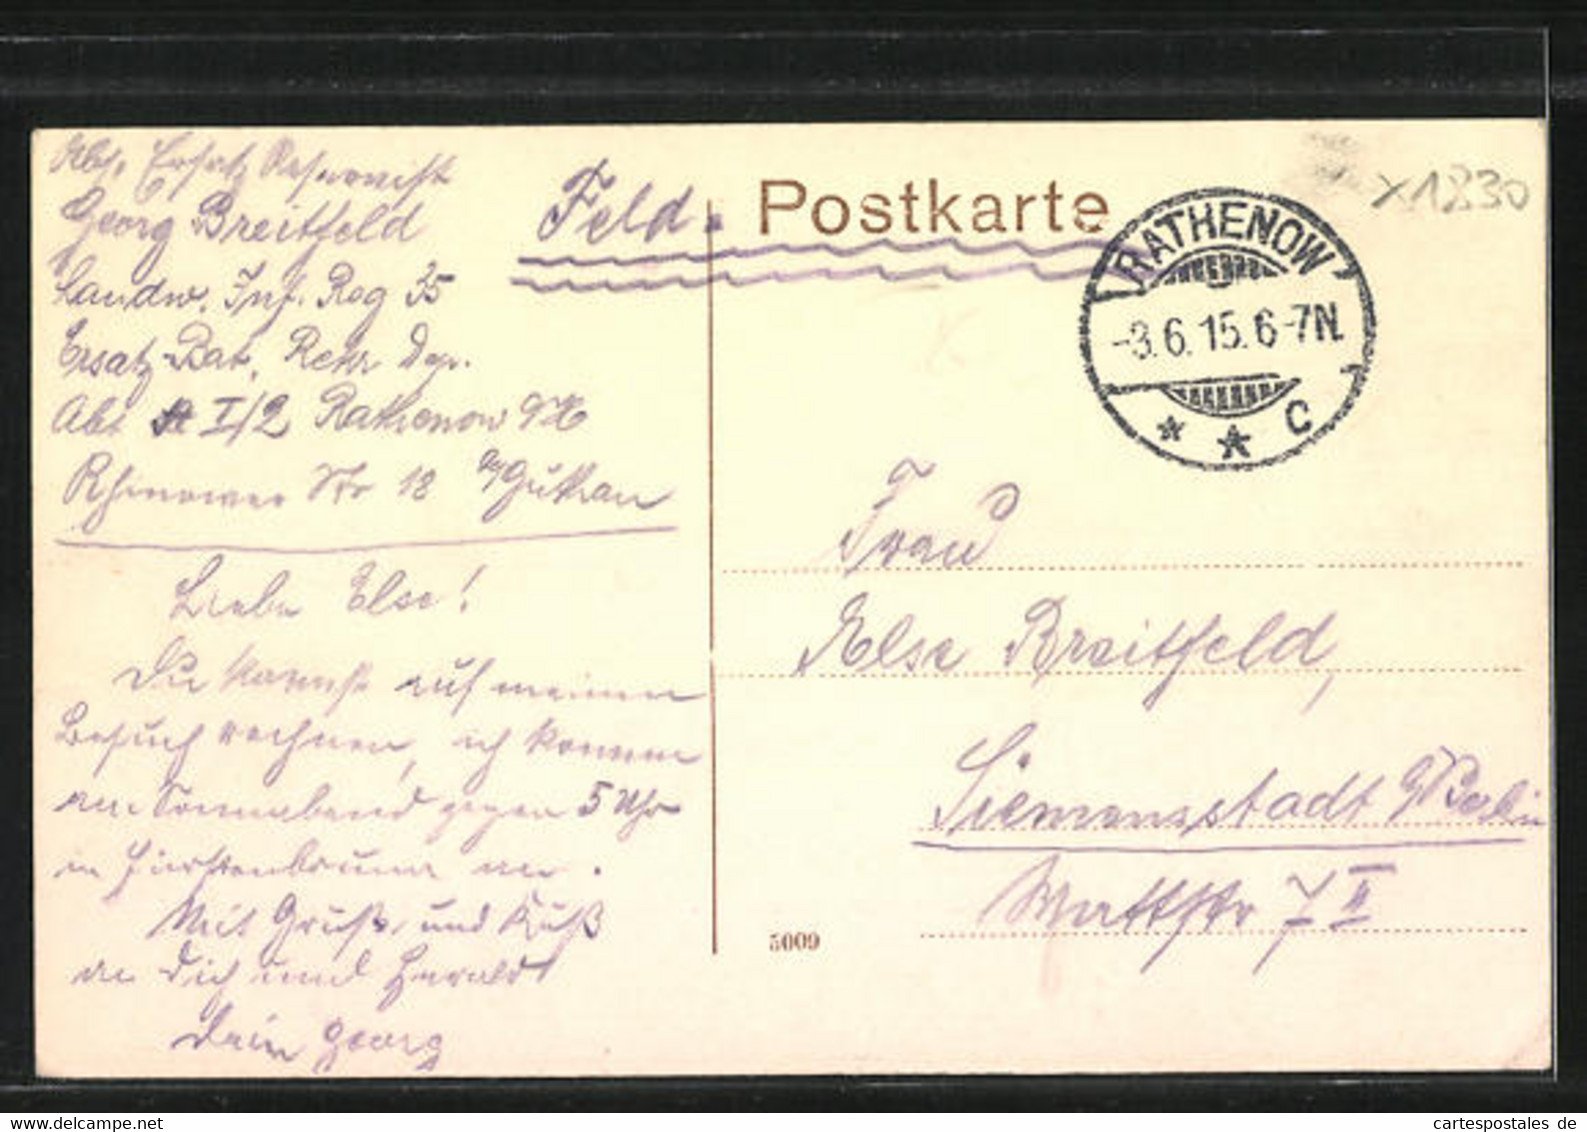 Abs. Ersatz Reservist
Georg Breitfeld
Landw. Inf. Reg 35
Ersatz Bat. Rekr Dep.
Abt I/2 Rathenow
Rhinower Str 18
Liebe Else!
Du kannst auf meinen
Besuch rechnen, ich komme
am Sonnabend gegen 5 Uhr
in Fürstenbrunn an.
Mit Gruß und Kuß
an Dich und Harald
Dein Georg
Feld-Postkarte
RATHENOW
-3.6.15.6-7N.
* * C
x1830
Frau
Else Breitfeld,
Siemensstadt b/Berlin
Wattstr 7 II
5009
cartespostales de